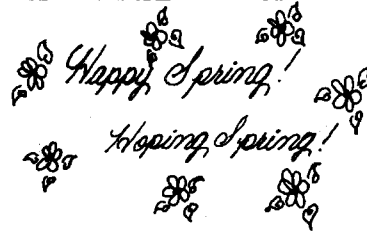 Happy Spring!
Hoping Spring!